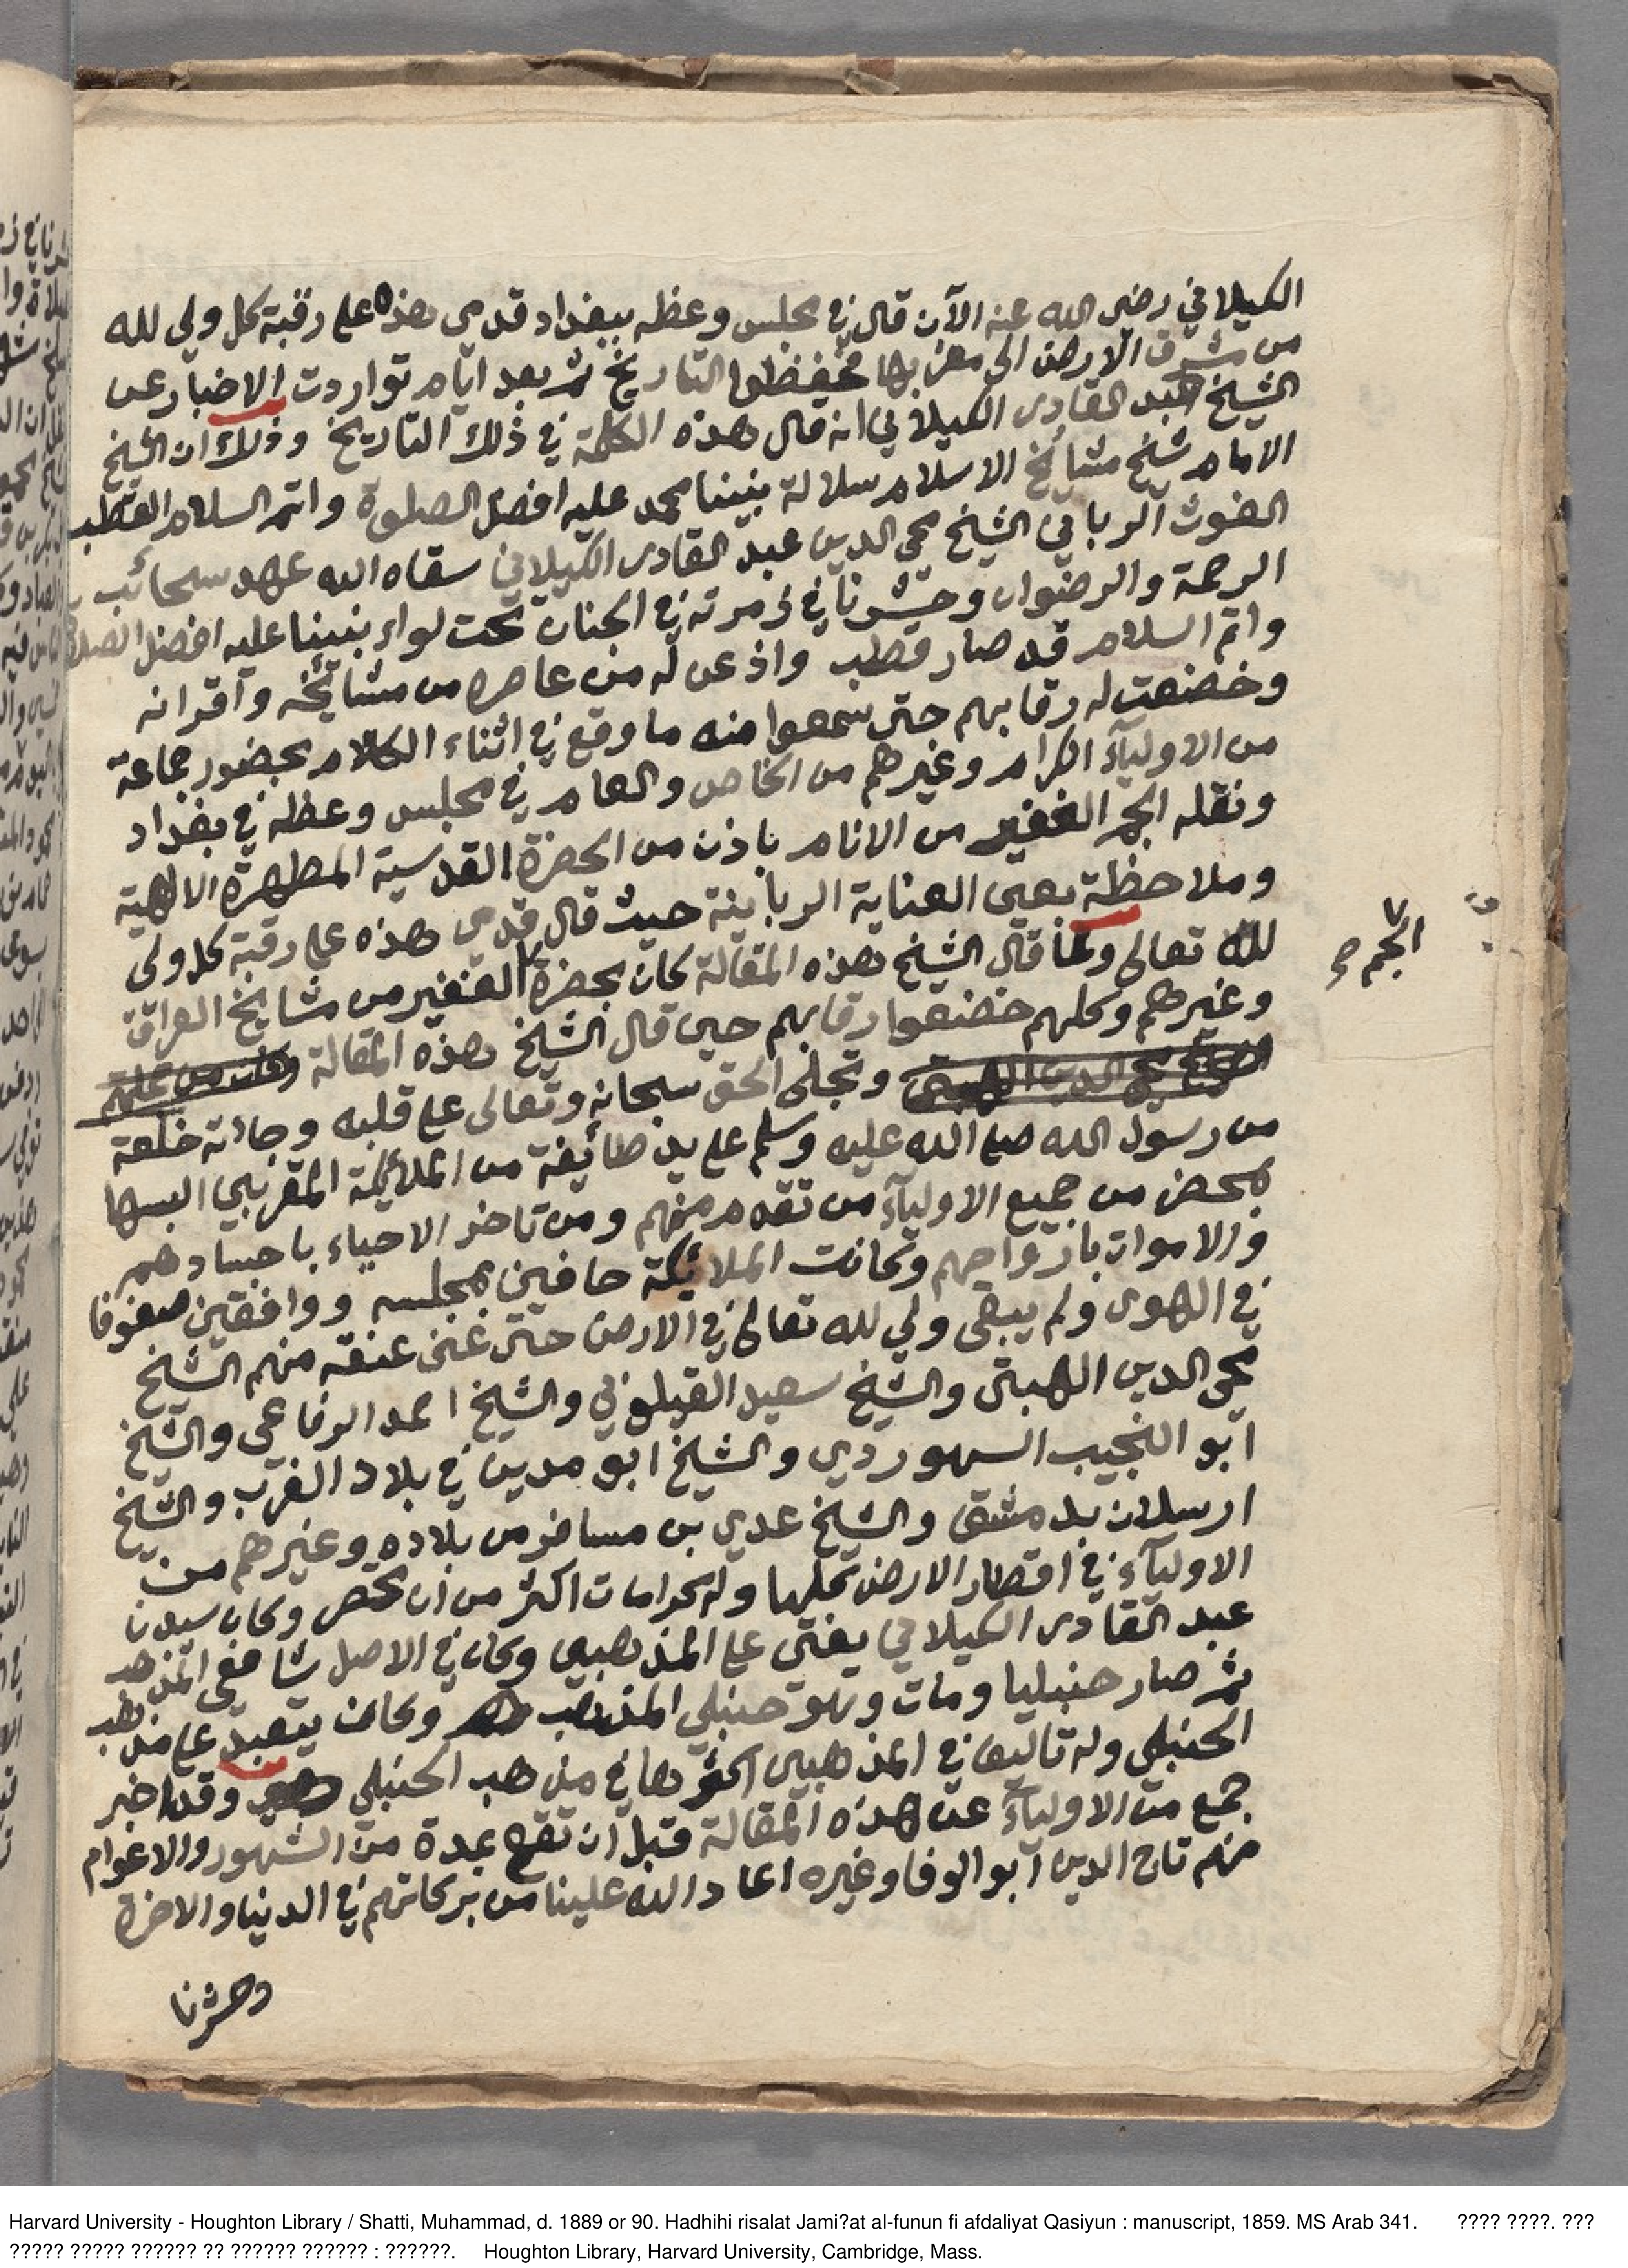 الكيلاني رضي الله عنه الآن قال في مجلس وعظه ببغداد قدمي هذه على رقبة كل ولي لله
من مشرق الارض الى مغربها فحفظوا التاريخ ثم بعد ايام تواردت الاخبار عن
الشيخ عبد القادر الكيلاني انه قال هذه الكلمة في ذلك التاريخ وذلك ان الشيخ
الامام شيخ مشائخ الاسلام سلالة نبينا محمد عليه افضل الصلوة واتم السلام القطب
الغوث الرباني الشيخ محي الدين عبد القادر الكيلاني سقاه الله عهد سحائب
الرحمة والرضوان وحشرنا في زمرته في الجنان تحت لواء نبينا عليه افضل الصلاة
واتم السلام قد صار قطب واذعن له من عاصره من مشائخه وأقرانه
وخضعت له رقابهم حتى سمعوا منه ما وقع في اثناء الكلام بحضور جماعة
من الاوليآء الكرام وغيرهم من الخاص والعام في مجلس وعظه في بغداد
ونقله الجم الغفير من الانام باذن من الحضرة القدسية المطهرة الالهية
وملاحظة بعين العناية الربانية حيث قال قدمي هذه على رقبة كل ولي
لله تعالى ولما قال الشيخ هذه المقالة كان بحضرة ٧ الغفير من مشايخ العراق
الجم صح
وغيرهم وكلهم خضعوا رقابهم حين قال الشيخ هذه المقالة
وتجلى الحق سبحانه وتعالى على قلبه وجائته خلعة
من رسول الله صلى الله عليه وسلم على يد طائفة من الملائكة المقربين البسها
بمحضر من جميع الاوليآء من تقدم منهم ومن تاخر الاحياء باجسادهم
والاموات بارواحهم وكانت الملائكة حافين بمجلسه وواقفين صفوفا
في الهوى ولم يبقى ولي لله تعالى في الارض حتى عنقه منهم الشيخ
محي الدين الهيتى والشيخ سعيد القيلوني والشيخ احمد الرفاعي والشيخ
ابو النجيب السهوردي والشيخ ابو مدين في بلاد الغرب والشيخ
ارسلان بدمشق والشيخ عدي بن مسافر من بلاده وغيرهم من
الاوليآء في اقطار الارض كلها وله كرامات اكثر من ان تحصى وكان سيدنا
عبد القادر الكيلاني يفتى على المذهبين وكان في الاصل شافعي المذهب
ثم صار حنبليا ومات وهو حنبلي المذهب وكان يتعبد على مذهب
الحنبلي وله تاليف في المذهبين اكثرها في مذهب الحنبلي وقد اخبر
جمع من الاوليآء عن هذه المقالة قبل ان تقع بمدة من الشهور والاعوام
منهم تاج الدين ابو الوفا وغيره اعاد الله علينا من بركاتهم في الدنيا والاخرة
وحشرنا
Harvard University - Houghton Library / Shatti, Muhammad, d. 1889 or 90. Hadhihi risalat Jami?at al-funun fi afdaliyat Qasiyun : manuscript, 1859. MS Arab 341. ???? ????. ???
????? ????? ?????? ?? ?????? ?????? : ??????. Houghton Library, Harvard University, Cambridge, Mass.